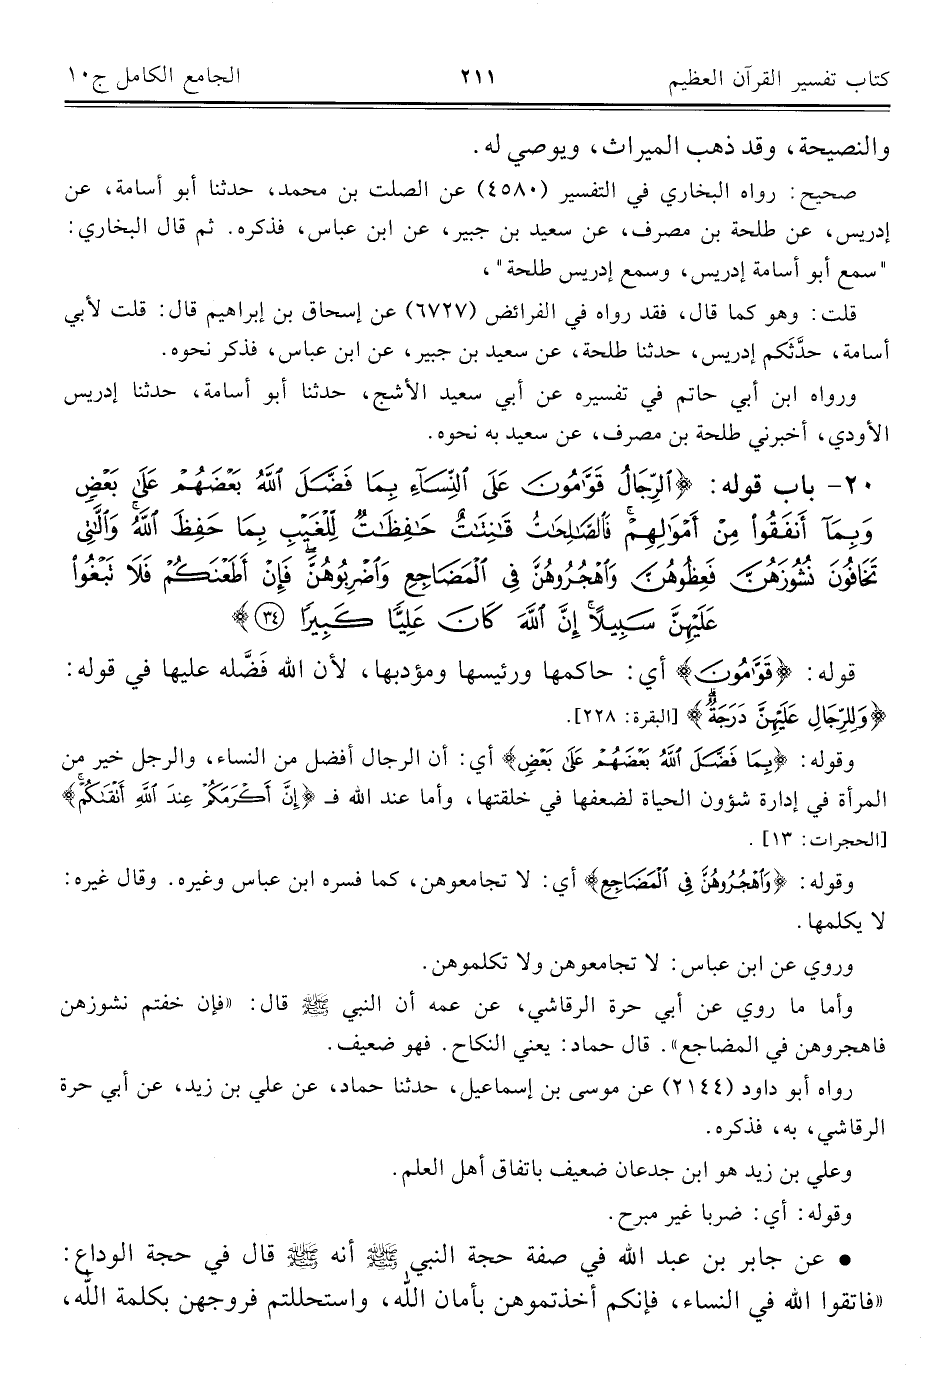 كتاب تفسير القرآن العظيم ٢١١ الجامع الكامل ج١٠
والنصيحة، وقد ذهب الميراث، ويوصي له.
صحيح: رواه البخاري في التفسير (٤٥٨٠) عن الصلت بن محمد، حدثنا أبو أسامة، عن
إدريس، عن طلحة بن مصرف، عن سعيد بن جبير، عن ابن عباس، فذكره. ثم قال البخاري:
"سمع أبو أسامة إدريس، وسمع إدريس طلحة"،
قلت: وهو كما قال، فقد رواه في الفرائض (٦٧٢٧) عن إسحاق بن إبراهيم قال: قلت لأبي
أسامة، حدَّثَكم إدريس، حدثنا طلحة، عن سعيد بن جبير، عن ابن عباس، فذكر نحوه.
ورواه ابن أبي حاتم في تفسيره عن أبي سعيد الأشج، حدثنا أبو أسامة، حدثنا إدريس
الأودي، أخبرني طلحة بن مصرف، عن سعيد به نحوه.
٢٠- باب قوله: ﴿ٱلرِّجَالُ قَوَّٰمُونَ عَلَى ٱلنِّسَآءِ بِمَا فَضَّلَ ٱللَّهُ بَعۡضَهُمۡ عَلَىٰ بَعۡضٖ
وَبِمَآ أَنفَقُواْ مِنۡ أَمۡوَٰلِهِمۡۚ فَٱلصَّٰلِحَٰتُ قَٰنِتَٰتٌ حَٰفِظَٰتٞ لِّلۡغَيۡبِ بِمَا حَفِظَ ٱللَّهُۚ وَٱلَّٰتِي
تَخَافُونَ نُشُوزَهُنَّ فَعِظُوهُنَّ وَٱهۡجُرُوهُنَّ فِي ٱلۡمَضَاجِعِ وَٱضۡرِبُوهُنَّۖ فَإِنۡ أَطَعۡنَكُمۡ فَلَا تَبۡغُواْ
عَلَيۡهِنَّ سَبِيلًاۗ إِنَّ ٱللَّهَ كَانَ عَلِيّٗا كَبِيرٗا ٣٤﴾
قوله: ﴿قَوَّٰمُونَ﴾ أي: حاكمها ورئيسها ومؤدبها، لأن الله فَضَّله عليها في قوله:
﴿وَلِلرِّجَالِ عَلَيۡهِنَّ دَرَجَةٞۗ﴾ [البقرة: ٢٢٨].
وقوله: ﴿بِمَا فَضَّلَ ٱللَّهُ بَعۡضَهُمۡ عَلَىٰ بَعۡضٖ﴾ أي: أن الرجال أفضل من النساء، والرجل خير من
المرأة في إدارة شؤون الحياة لضعفها في خلقتها، وأما عند الله فـ ﴿إِنَّ أَكۡرَمَكُمۡ عِندَ ٱللَّهِ أَتۡقَىٰكُمۡۚ﴾
[الحجرات: ١٣].
وقوله: ﴿وَٱهۡجُرُوهُنَّ فِي ٱلۡمَضَاجِعِ﴾ أي: لا تجامعوهن، كما فسره ابن عباس وغيره. وقال غيره:
لا يكلمها.
وروي عن ابن عباس: لا تجامعوهن ولا تكلموهن.
وأما ما روي عن أبي حرة الرقاشي، عن عمه أن النبي ﷺ قال: «فإن خفتم نشوزهن
فاهجروهن في المضاجع». قال حماد: يعني النكاح. فهو ضعيف.
رواه أبو داود (٢١٤٤) عن موسى بن إسماعيل، حدثنا حماد، عن علي بن زيد، عن أبي حرة
الرقاشي، به، فذكره.
وعلي بن زيد هو ابن جدعان ضعيف باتفاق أهل العلم.
وقوله: أي: ضربا غير مبرح.
● عن جابر بن عبد الله في صفة حجة النبي ﷺ أنه ﷺ قال في حجة الوداع:
«فاتقوا الله في النساء، فإنكم أخذتموهن بأمان الله، واستحللتم فروجهن بكلمة الله،